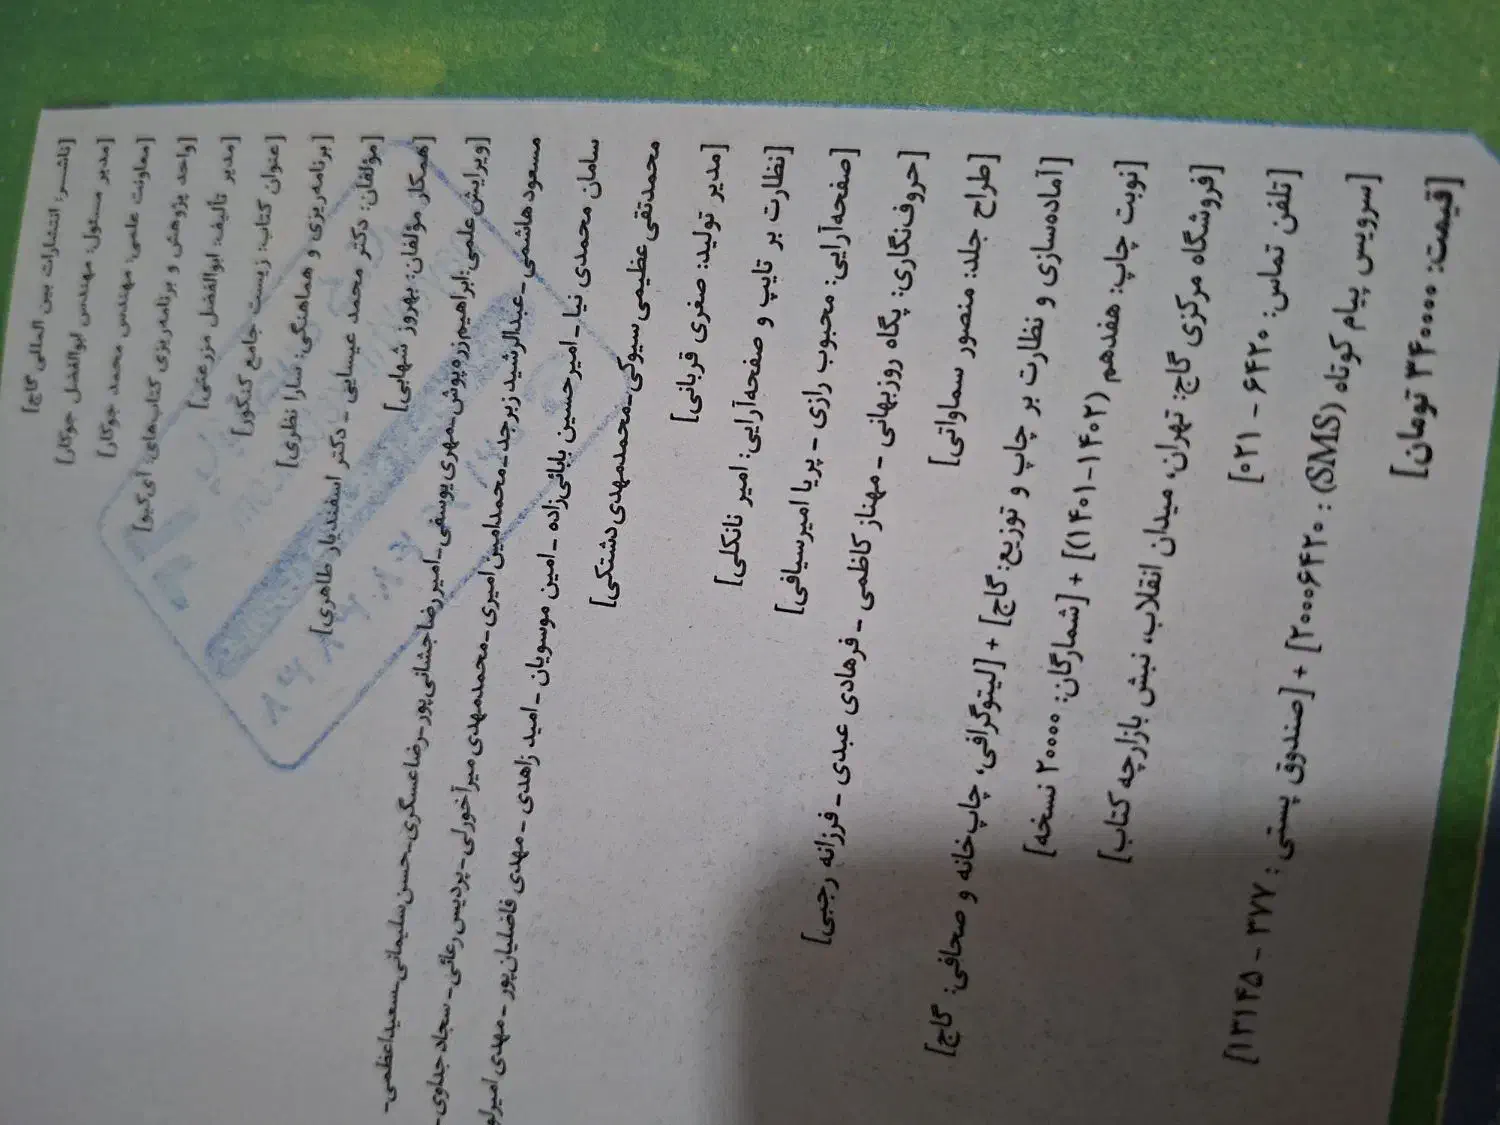 [ناشر: انتشارات بین المللی گاج]
[مدیر مسئول: مهندس ابوالفضل جوکار]
[معاونت علمی: مهندس محمد جوکار]
[واحد پژوهش و برنامه‌ریزی کتاب‌های: آی‌کیو]
[مدیر تألیف: ابوالفضل مزرعتی]
[عنوان کتاب: زیست جامع کنکور]
[برنامه‌ریزی و هماهنگی: سارا نظری]
[مؤلفان: دکتر محمد عیسایی - دکتر اسفندیار طاهری]
[همکار مؤلفان: بهروز شهابی]
[ویرایش علمی: ابراهیم زره‌پوش - مهری یوسفی - امیررضا جشانی‌پور - رضا عسگری - حسن سلیمانی - سعید اعظمی -
مسعود هاشمی - عبدالرشید زبرجد - محمدامین امیری - محمدمهدی میرآخورلی - پردیس رعائی - سجاد جداوی -
سامان محمدی نیا - امیرحسین بابائی‌زاده - امین موسویان - امید زاهدی - مهدی فاضلیان‌پور - مهدی
محمدتقی عظیمی سیوکی - محمدمهدی دشتکی]
[مدیر تولید: صغری قربانی]
[نظارت بر تایپ و صفحه‌آرایی: امیر نانکلی]
[صفحه‌آرایی: محبوب رازی - پریا امیرسیافی]
[حروف‌نگاری: پگاه روزبهانی - مهناز کاظمی - فرهادی عبدی - فرزانه رجبی]
[طراح جلد: منصور سماواتی]
[آماده‌سازی و نظارت بر چاپ و توزیع: گاج] + [لیتوگرافی، چاپ‌خانه و صحافی: گاج]
[نوبت چاپ: هفدهم (۱۴۰۲-۱۴۰۱)] + [شمارگان: ۲۰۰۰۰ نسخه]
[فروشگاه مرکزی گاج: تهران، میدان انقلاب، نبش بازارچه کتاب]
[تلفن تماس: ۶۴۲۰ - ۰۲۱]
[سرویس پیام کوتاه (SMS): ۲۰۰۰۶۴۲۰] + [صندوق پستی: ۳۷۷ - ۱۳۱۴۵]
[قیمت: ۳۴۰۰۰۰ تومان]